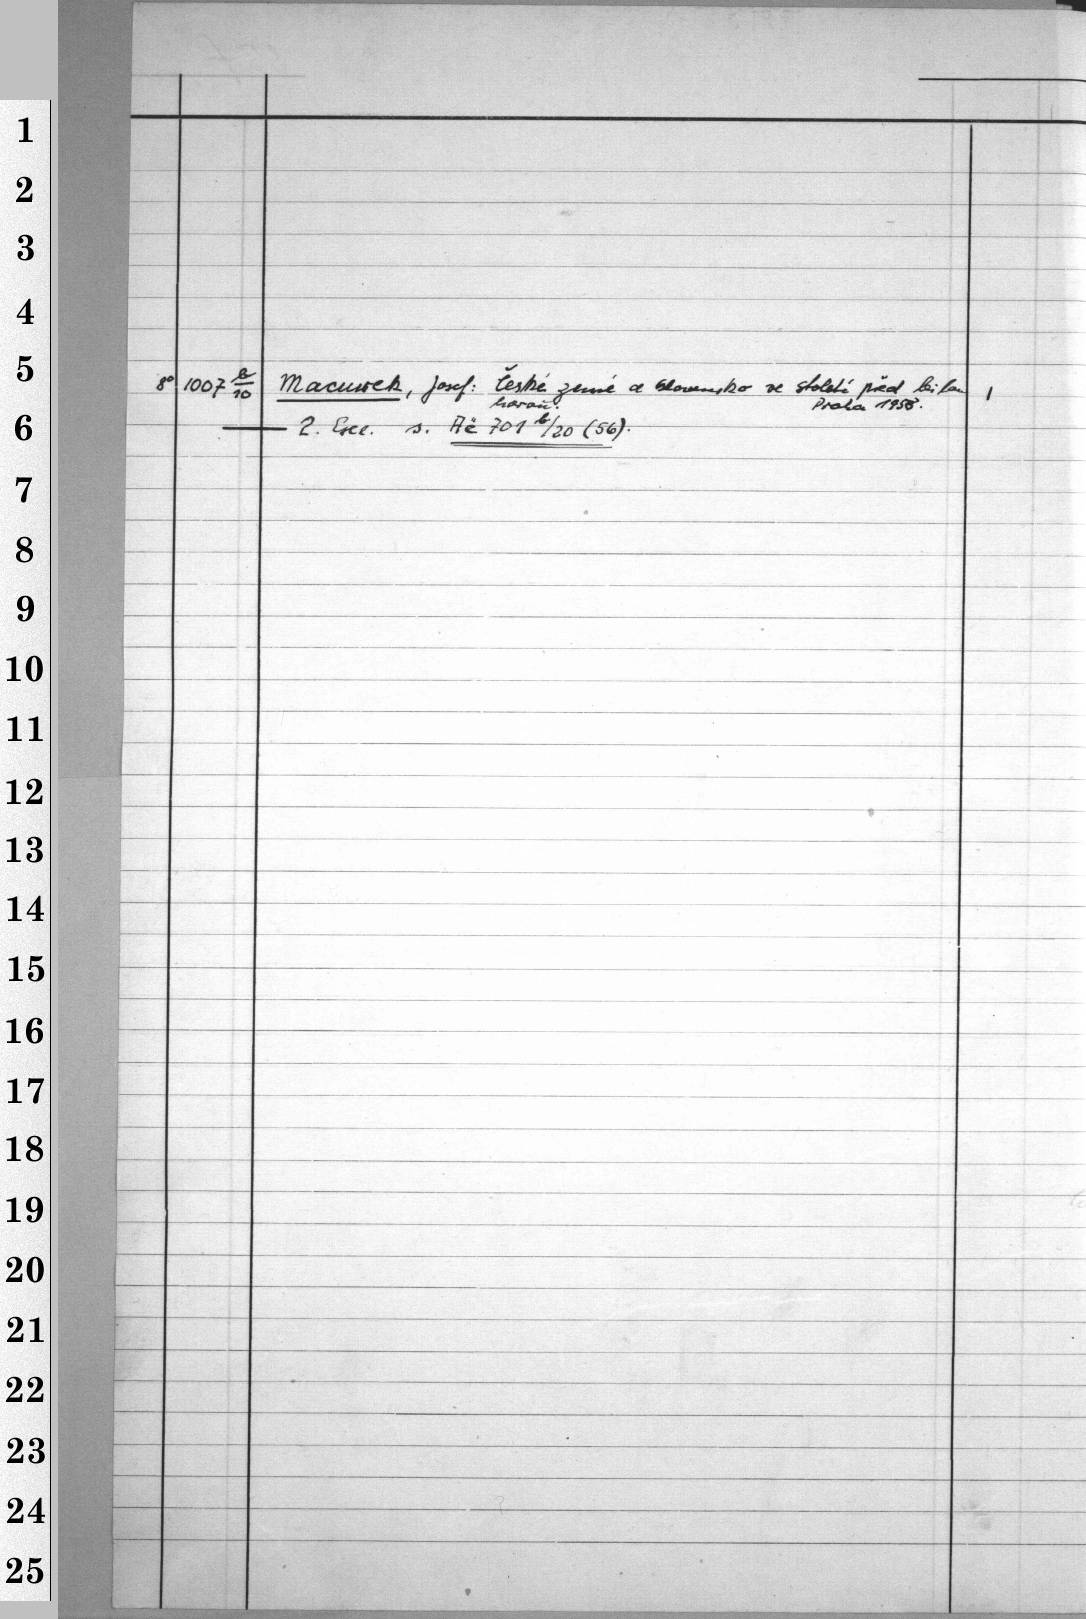 1
2
3
4
5
8° 1007 b/10 Macurek, Josef: České země a Slovensko ve století před bilou
horou. Praha 1958. 1
6
2. Exe. s. Ač 701 b/20 (56).
7
8
9
10
11
12
13
14
15
16
17
18
19
20
21
22
23
24
25